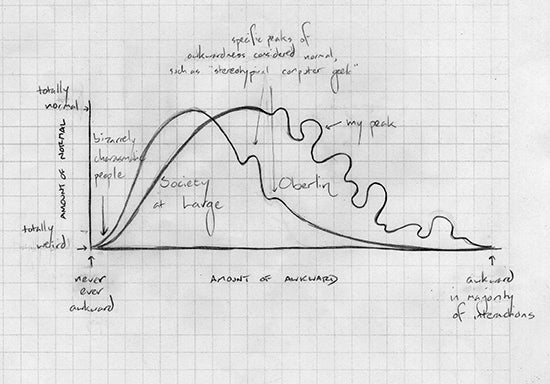 specific peaks of
awkwardness considered normal,
such as "stereotypical computer geek"
totally
normal
my peak
bizarrely
charismatic
people
AMOUNT OF NORMAL
Society
at Large
Oberlin
totally
weird
never
ever
awkward
AMOUNT OF AWKWARD
awkward
in majority
of interactions